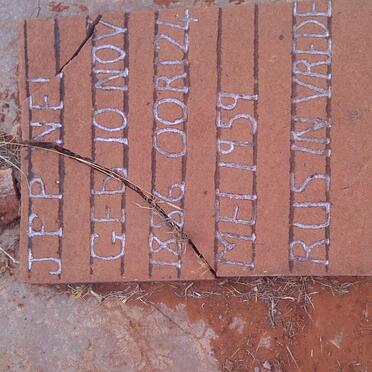 J P P NEL
GEB 10 NOV
1886 OORL 24
MEI 1959
RUS IN VREDE